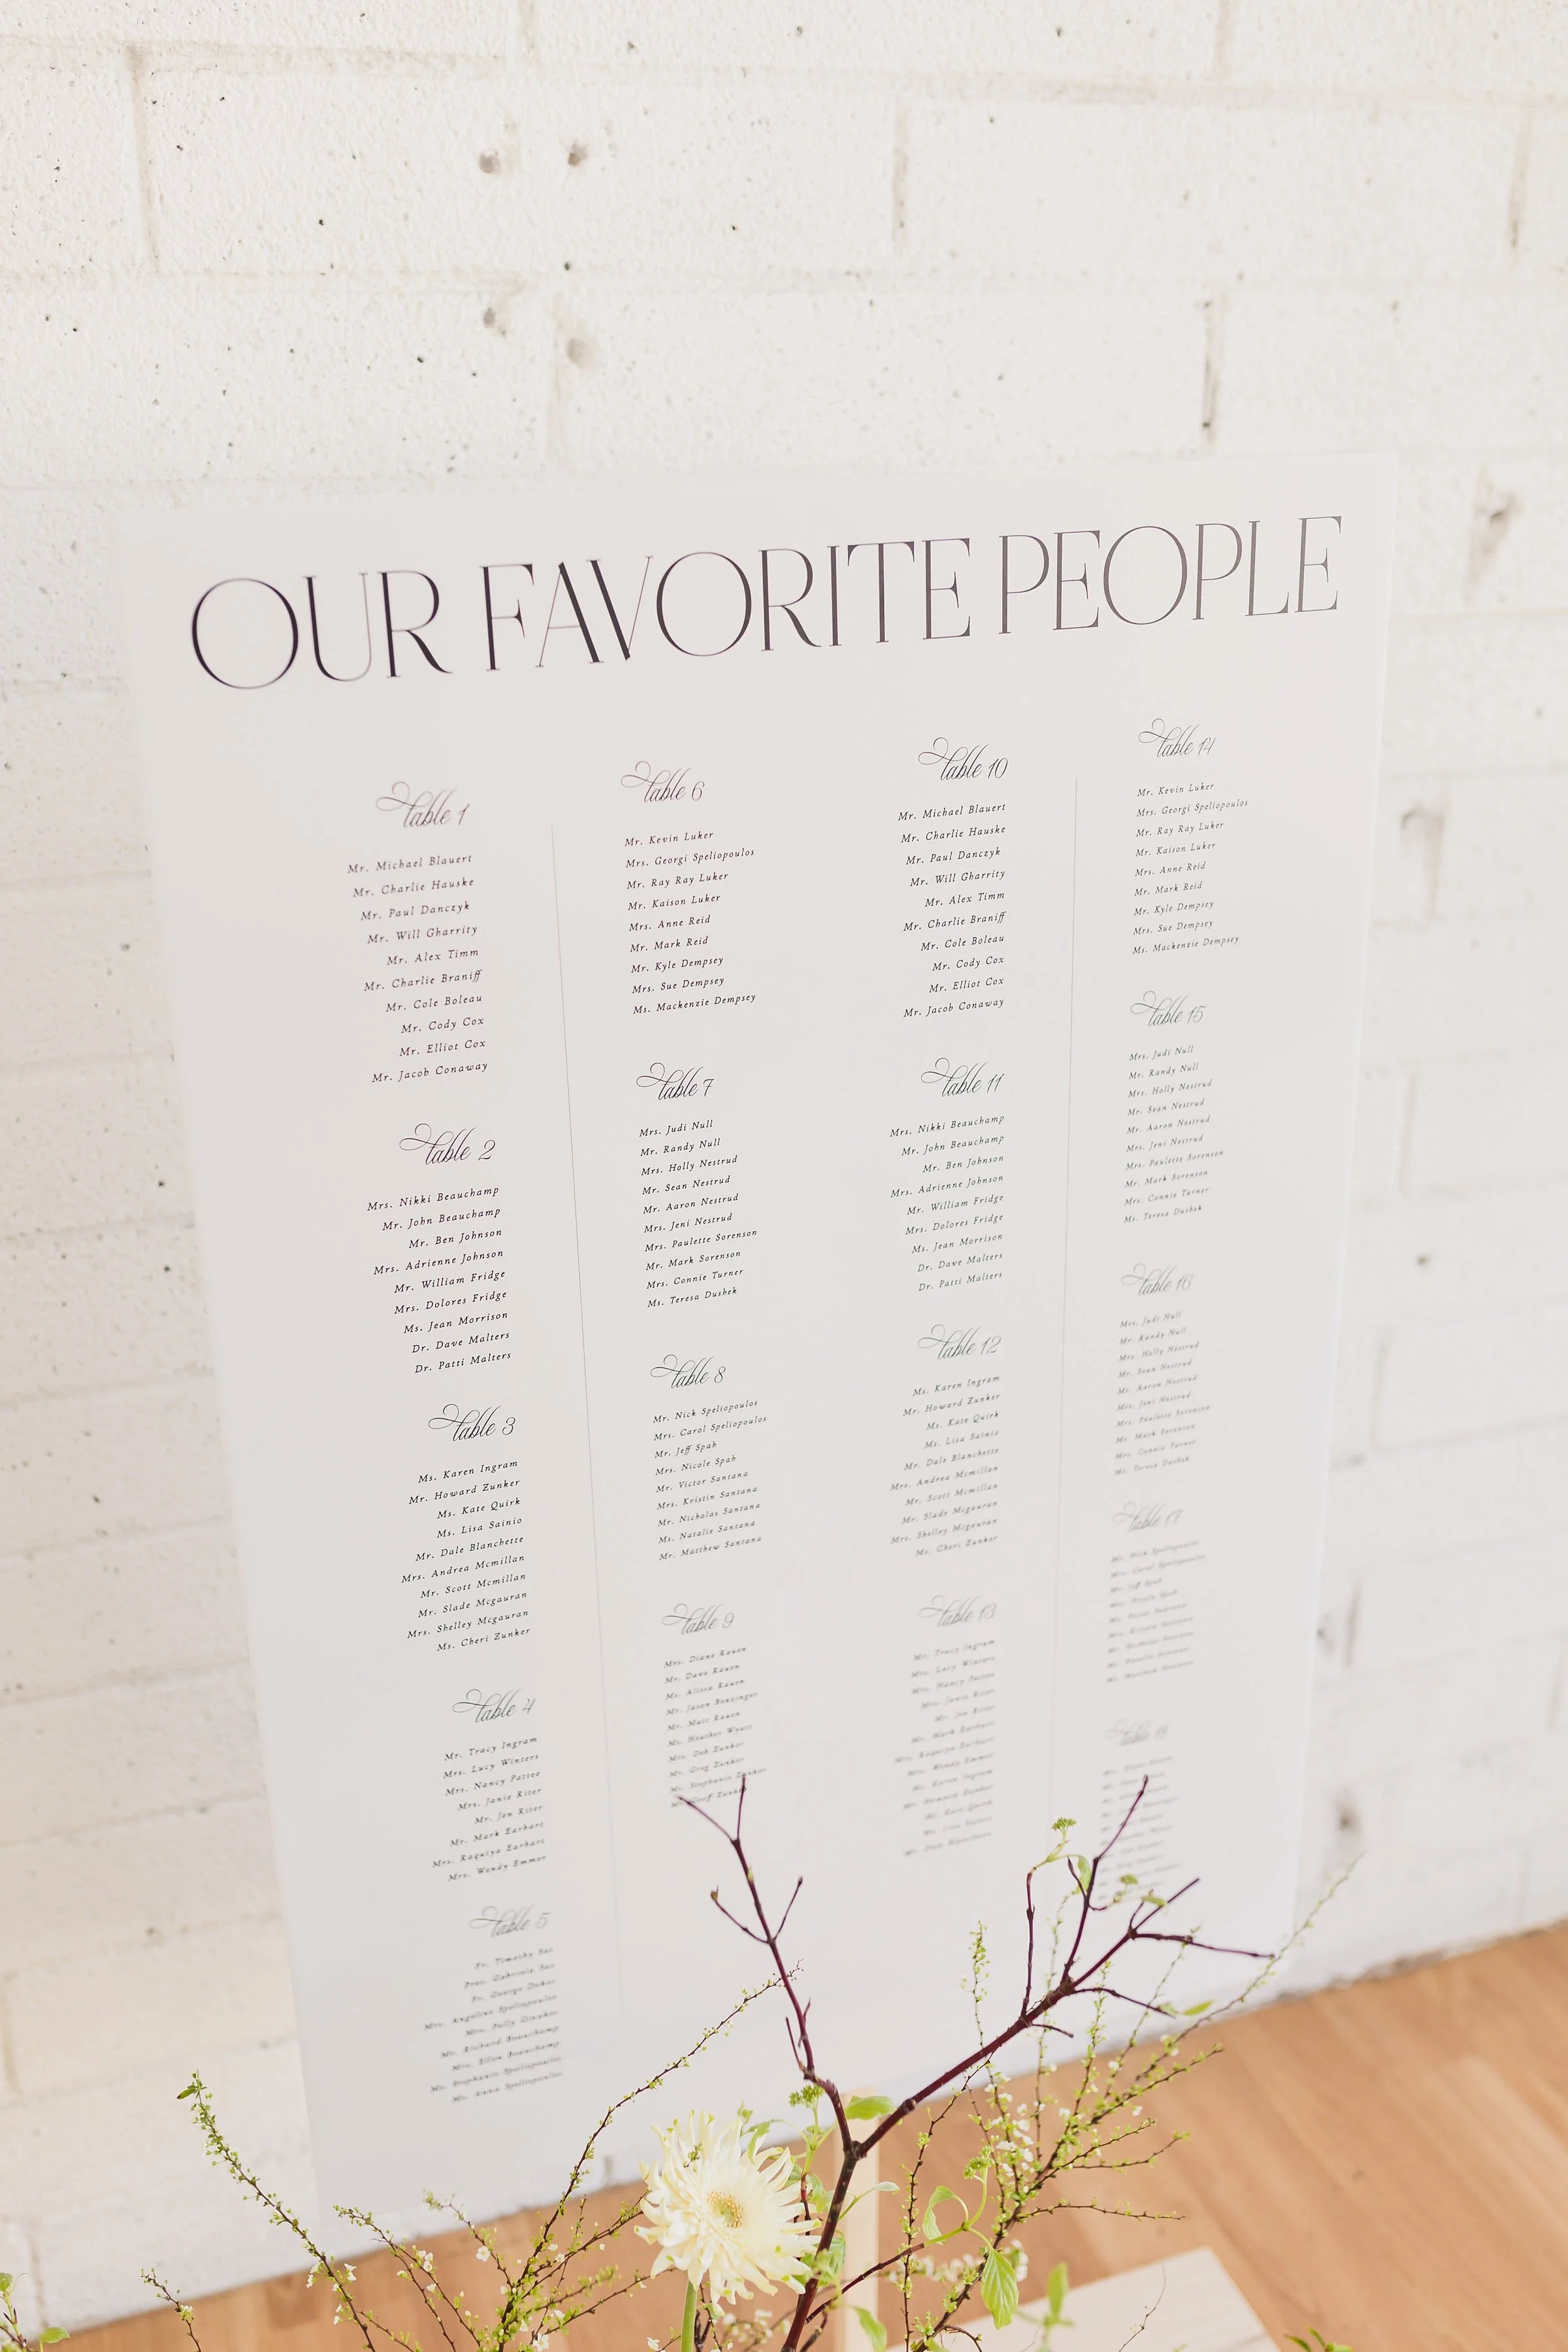 OUR FAVORITE PEOPLE
Table 1
Mr. Michael Blauert
Mr. Charlie Hauske
Mr. Paul Danczyk
Mr. Will Gharrity
Mr. Alex Timm
Mr. Charlie Braniff
Mr. Cole Boleau
Mr. Cody Cox
Mr. Elliot Cox
Mr. Jacob Conaway
Table 2
Mrs. Nikki Beauchamp
Mr. John Beauchamp
Mr. Ben Johnson
Mrs. Adrienne Johnson
Mr. William Fridge
Mrs. Dolores Fridge
Ms. Jean Morrison
Dr. Dave Malters
Dr. Patti Malters
Table 3
Ms. Karen Ingram
Mr. Howard Zunker
Ms. Kate Quirk
Ms. Lisa Sainio
Mr. Dale Blanchette
Mrs. Andrea Mcmillan
Mr. Scott Mcmillan
Mr. Slade Mcgauran
Mrs. Shelley Mcgauran
Ms. Cheri Zunker
Table 4
Mr. Tracy Ingram
Mrs. Lucy Winters
Mrs. Nancy Pattee
Mrs. Janie Riter
Mr. Jen Riter
Mr. Mark Earhart
Mrs. Raquiya Earhart
Mrs. Wendy Emmer
Table 5
Table 6
Mr. Kevin Luker
Mrs. Georgi Speliopoulos
Mr. Ray Ray Luker
Mr. Kaison Luker
Mrs. Anne Reid
Mr. Mark Reid
Mr. Kyle Dempsey
Mrs. Sue Dempsey
Ms. Mackenzie Dempsey
Table 7
Mrs. Judi Null
Mr. Randy Null
Mrs. Holly Nestrud
Mr. Sean Nestrud
Mr. Aaron Nestrud
Mrs. Jeni Nestrud
Mrs. Paulette Sorenson
Mr. Mark Sorenson
Mrs. Connie Turner
Ms. Teresa Dushek
Table 8
Mr. Nick Speliopoulos
Mrs. Carol Speliopoulos
Mr. Jeff Spah
Mrs. Nicole Spah
Mr. Victor Santana
Mrs. Kristin Santana
Mr. Nicholas Santana
Ms. Natalie Santana
Mr. Matthew Santana
Table 9
Mrs. Diane Rauen
Mr. Dave Rauen
Ms. Alissa Rauen
Mr. Jason Benzinger
Mr. Matt Rauen
Ms. Heather Wyatt
Mrs. Deb Zunker
Mr. Greg Zunker
Ms. Stephanie Zunker
Table 10
Mr. Michael Blauert
Mr. Charlie Hauske
Mr. Paul Danczyk
Mr. Will Gharrity
Mr. Alex Timm
Mr. Charlie Braniff
Mr. Cole Boleau
Mr. Cody Cox
Mr. Elliot Cox
Mr. Jacob Conaway
Table 11
Mrs. Nikki Beauchamp
Mr. John Beauchamp
Mr. Ben Johnson
Mrs. Adrienne Johnson
Mr. William Fridge
Mrs. Dolores Fridge
Ms. Jean Morrison
Dr. Dave Malters
Dr. Patti Malters
Table 12
Ms. Karen Ingram
Mr. Howard Zunker
Ms. Kate Quirk
Ms. Lisa Sainio
Mr. Dale Blanchette
Mrs. Andrea Mcmillan
Mr. Scott Mcmillan
Mr. Slade Mcgauran
Mrs. Shelley Mcgauran
Ms. Cheri Zunker
Table 13
Mr. Tracy Ingram
Mrs. Lucy Winters
Mrs. Nancy Pattee
Mrs. Janie Riter
Mr. Jen Riter
Mr. Mark Earhart
Mrs. Raquiya Earhart
Mrs. Wendy Emmer
Ms. Karen Ingram
Mr. Howard Zunker
Table 14
Mr. Kevin Luker
Mrs. Georgi Speliopoulos
Mr. Ray Ray Luker
Mr. Kaison Luker
Mrs. Anne Reid
Mr. Mark Reid
Mr. Kyle Dempsey
Mrs. Sue Dempsey
Ms. Mackenzie Dempsey
Table 15
Mrs. Judi Null
Mr. Randy Null
Mrs. Holly Nestrud
Mr. Sean Nestrud
Mr. Aaron Nestrud
Mrs. Jeni Nestrud
Mrs. Paulette Sorenson
Mr. Mark Sorenson
Mrs. Connie Turner
Ms. Teresa Dushek
Table 16
Mrs. Judi Null
Mr. Randy Null
Mrs. Holly Nestrud
Mr. Sean Nestrud
Mr. Aaron Nestrud
Mrs. Jeni Nestrud
Mrs. Paulette Sorenson
Mr. Mark Sorenson
Mrs. Connie Turner
Ms. Teresa Dushek
Table 17